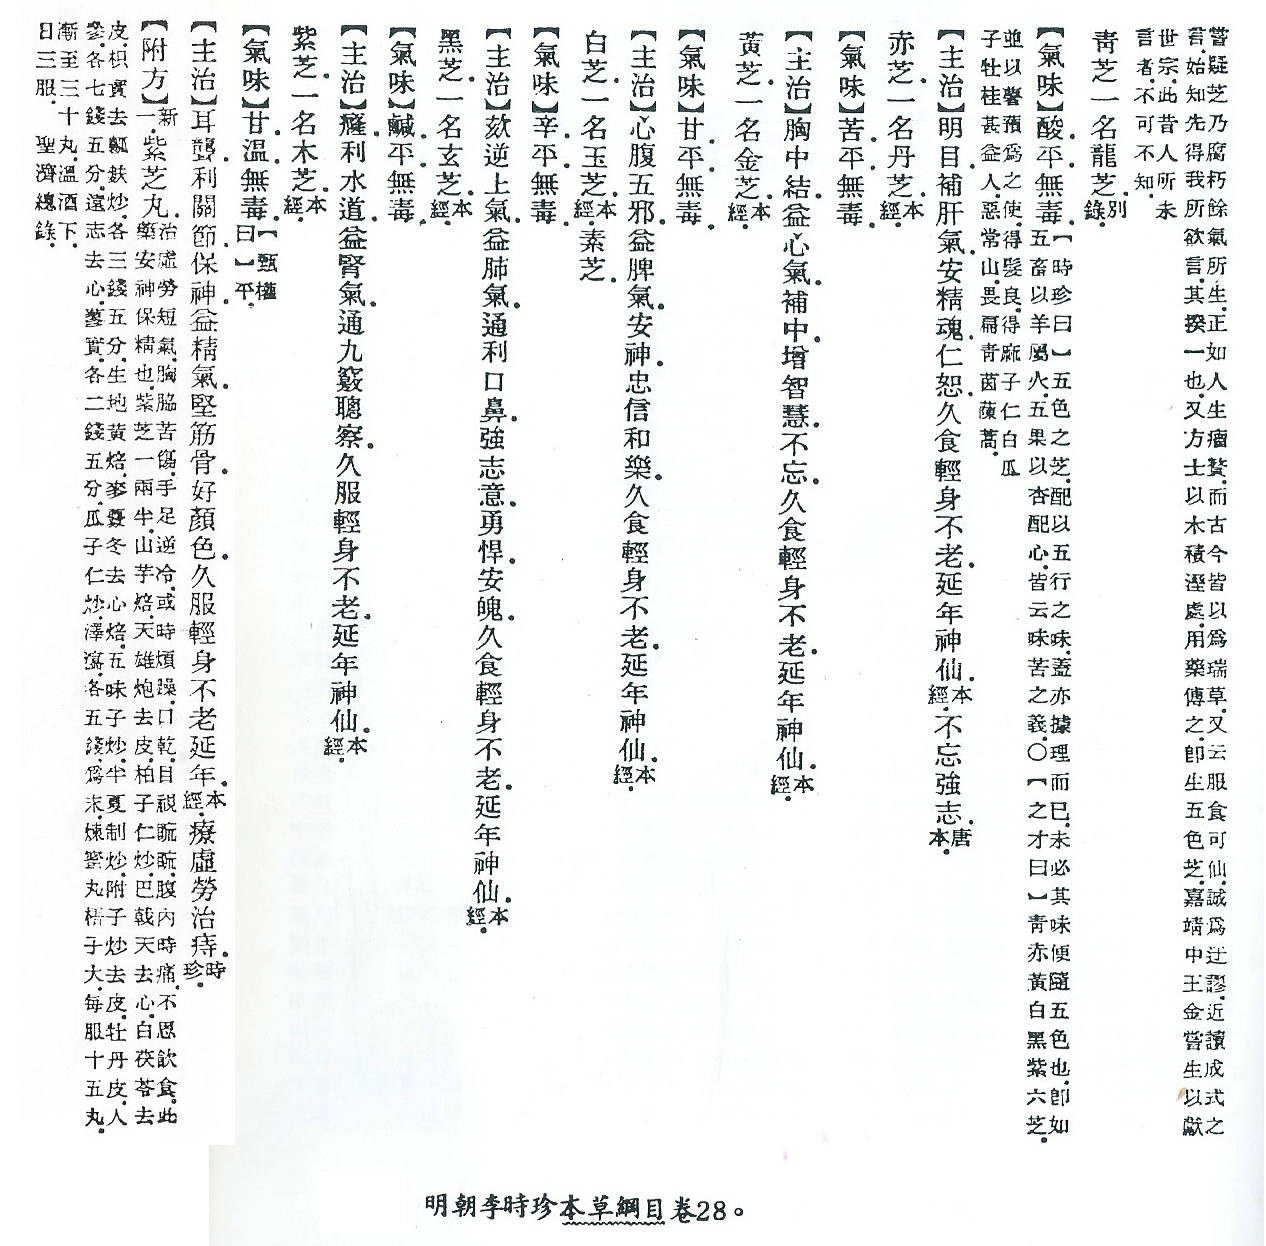 嘗疑芝乃腐朽餘氣所生.正如人生瘤贅.而古今皆以爲瑞草.又云服食可仙.誠爲迂謬.近讀成式之
言.始知先得我所欲言.其揆一也.又方士以木積溼處.用藥傅之.卽生五色芝.嘉靖中王金嘗生以獻
世宗.此昔人所未
言者.不可不知.
靑芝一名龍芝.別錄.
【氣味】酸.平.無毒.【時珍曰】五色之芝.配以五行之味.蓋亦據理而已.未必其味便隨五色也.卽如
五畜以羊屬火.五果以杏配心.皆云味苦之義.〇【之才曰】靑赤黃白黑紫六芝.
並以薯蕷爲之使.得髮良.得麻子仁白瓜
子牡桂甚益人.惡常山.畏扁靑茵蔯蒿.
【主治】明目.補肝氣.安精魂.仁恕.久食輕身不老.延年神仙.本經.不忘強志.唐本.
赤芝.一名丹芝.本經.
【氣味】苦.平.無毒.
【主治】胸中結.益心氣.補中.增智慧.不忘.久食輕身不老.延年神仙.本經.
黃芝.一名金芝.本經.
【氣味】甘.平.無毒.
【主治】心腹五邪.益脾氣.安神.忠信和樂.久食輕身不老.延年神仙.本經.
白芝.一名玉芝.本經.素芝.
【氣味】辛.平.無毒.
【主治】欬逆上氣.益肺氣.通利口鼻.強志意.勇悍.安魄.久食輕身不老.延年神仙.本經.
黑芝.一名玄芝.本經.
【氣味】鹹.平.無毒.
【主治】癃.利水道.益腎氣.通九竅.聰察.久服輕身不老.延年神仙.本經.
紫芝.一名木芝.本經.
【氣味】甘.溫.無毒.【甄權曰】平.
【主治】耳聾.利關節.保神.益精氣.堅筋骨.好顏色.久服輕身不老延年.本經.療虛勞.治痔.時珍.
【附方】新一.紫芝丸.治虛勞短氣.胸脇苦傷.手足逆冷.或時煩躁.口乾.目視𥆨𥆨.腹內時痛.不思飲食.此
藥安神保精也.紫芝一兩半.山芋焙.天雄炮去皮.柏子仁炒.巴戟天去心.白茯苓去
皮.枳實去瓤麩炒.各三錢五分.生地黃焙.麥門冬去心焙.五味子炒.半夏制炒.附子炒去皮.牡丹皮.人
參.各七錢五分.遠志去心.蓼實.各二錢五分.瓜子仁炒.澤瀉.各五錢.爲末.煉蜜丸梧子大.每服十五丸.
漸至三十丸.溫酒下.
日三服.聖濟總錄.
明朝李時珍本草綱目卷28。